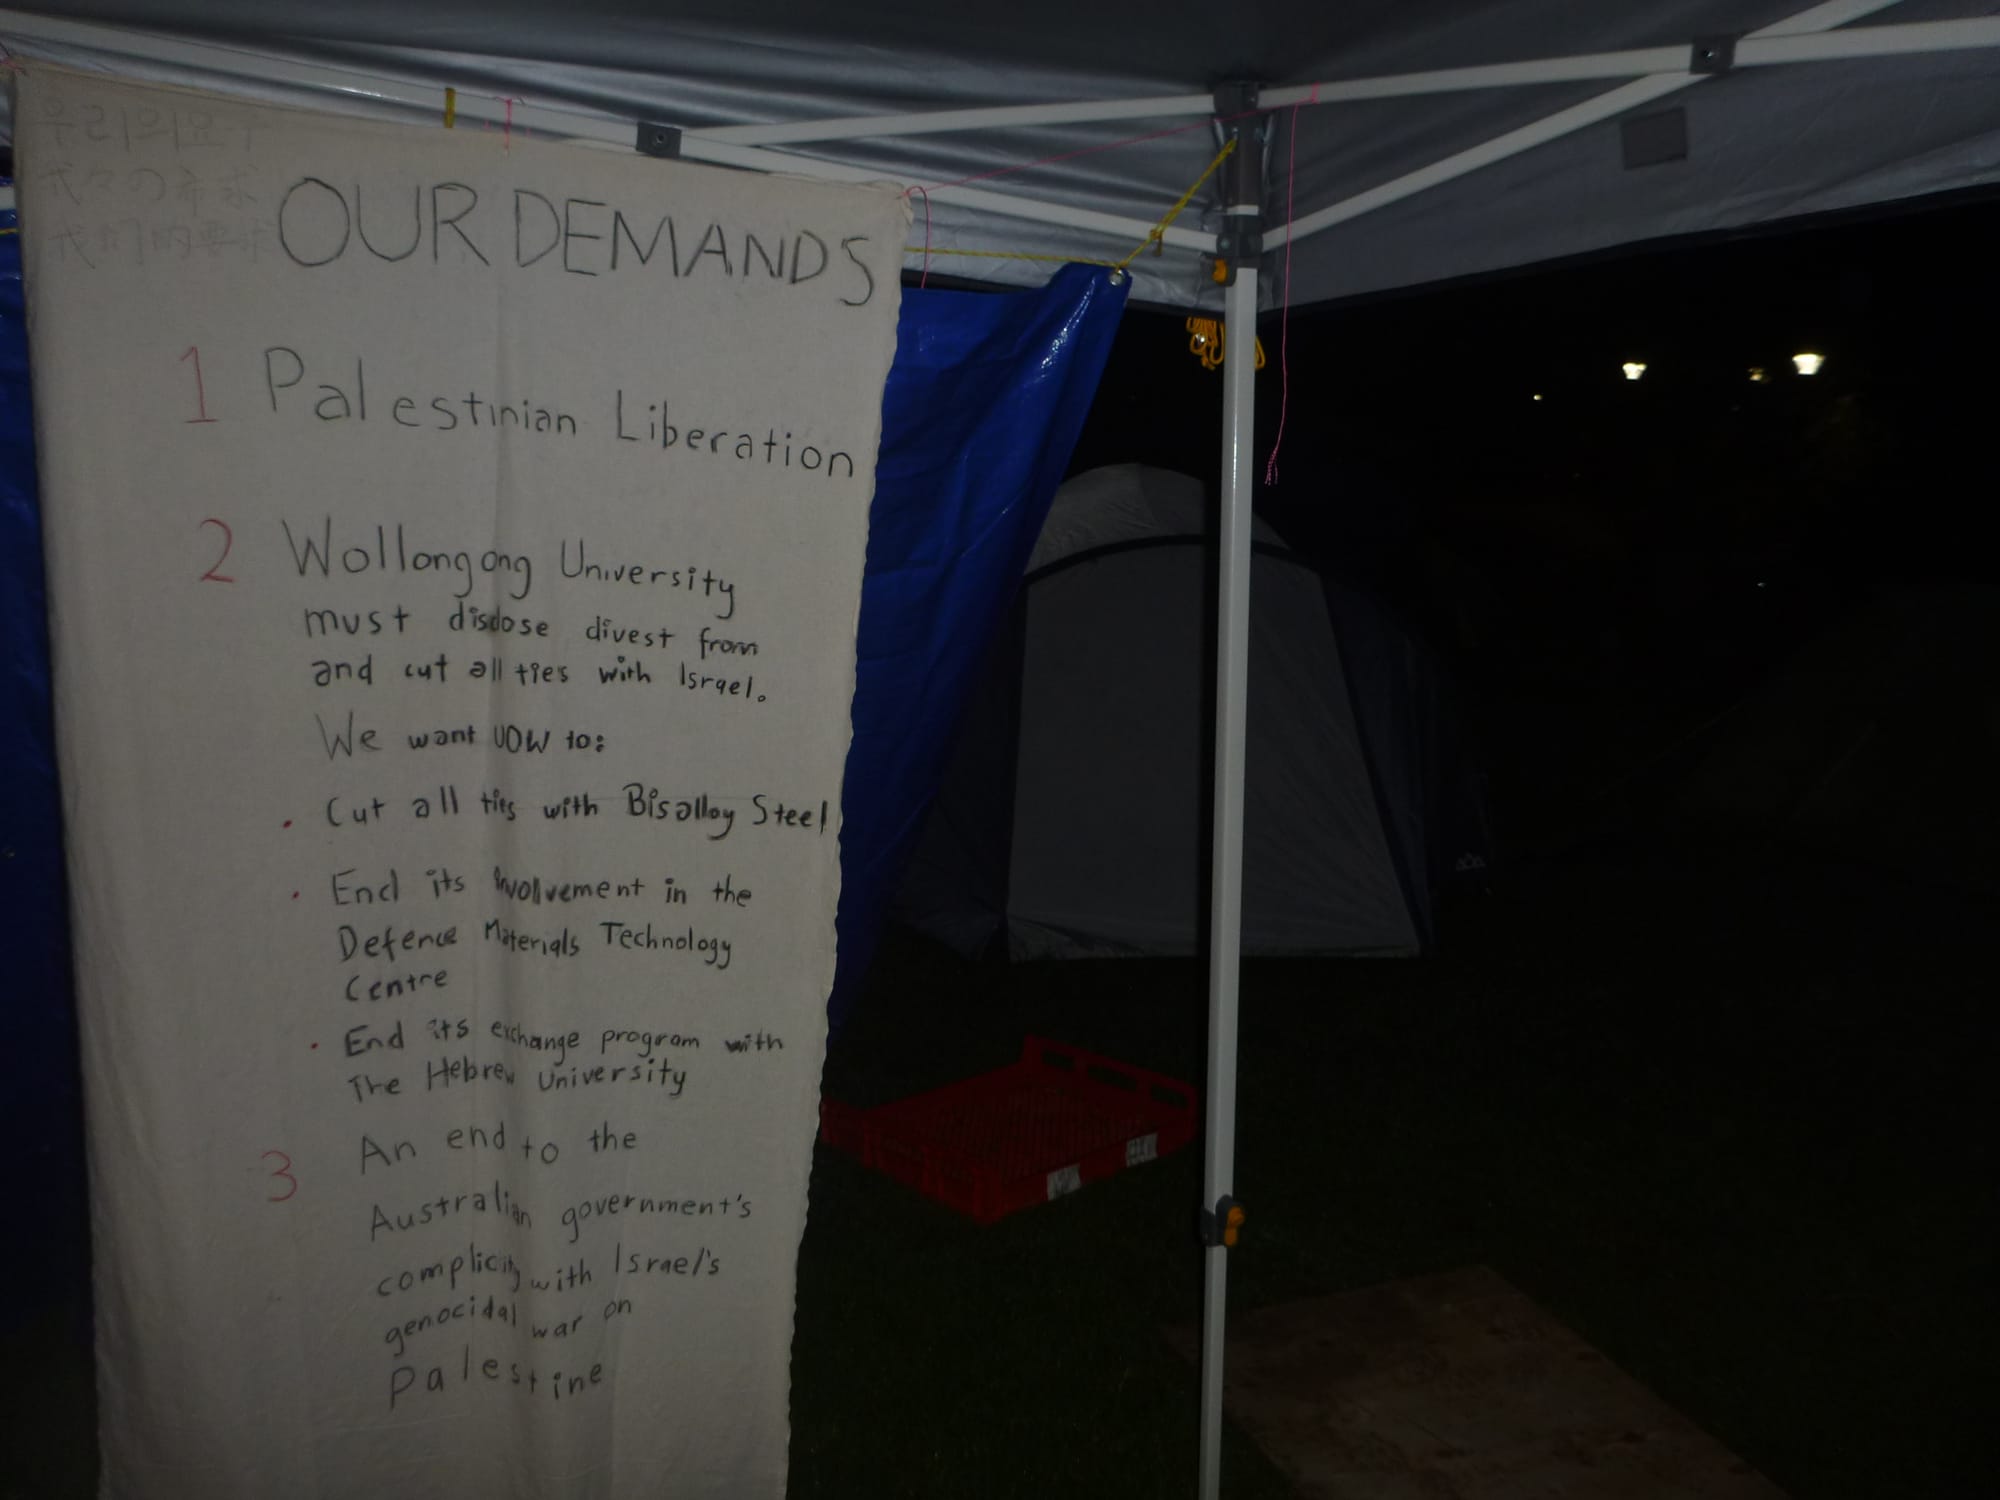 우리의요구
我々の希求
我们的要求
OUR DEMANDS
1 Palestinian Liberation
2 Wollongong University
must disclose divest from
and cut all ties with Israel.
We want UOW to:
• Cut all ties with Bisalloy Steel
• End its involvement in the
Defence Materials Technology
Centre
• End its exchange program with
The Hebrew University
3 An end to the
Australian government's
complicity with Israel's
genocidal war on
Palestine